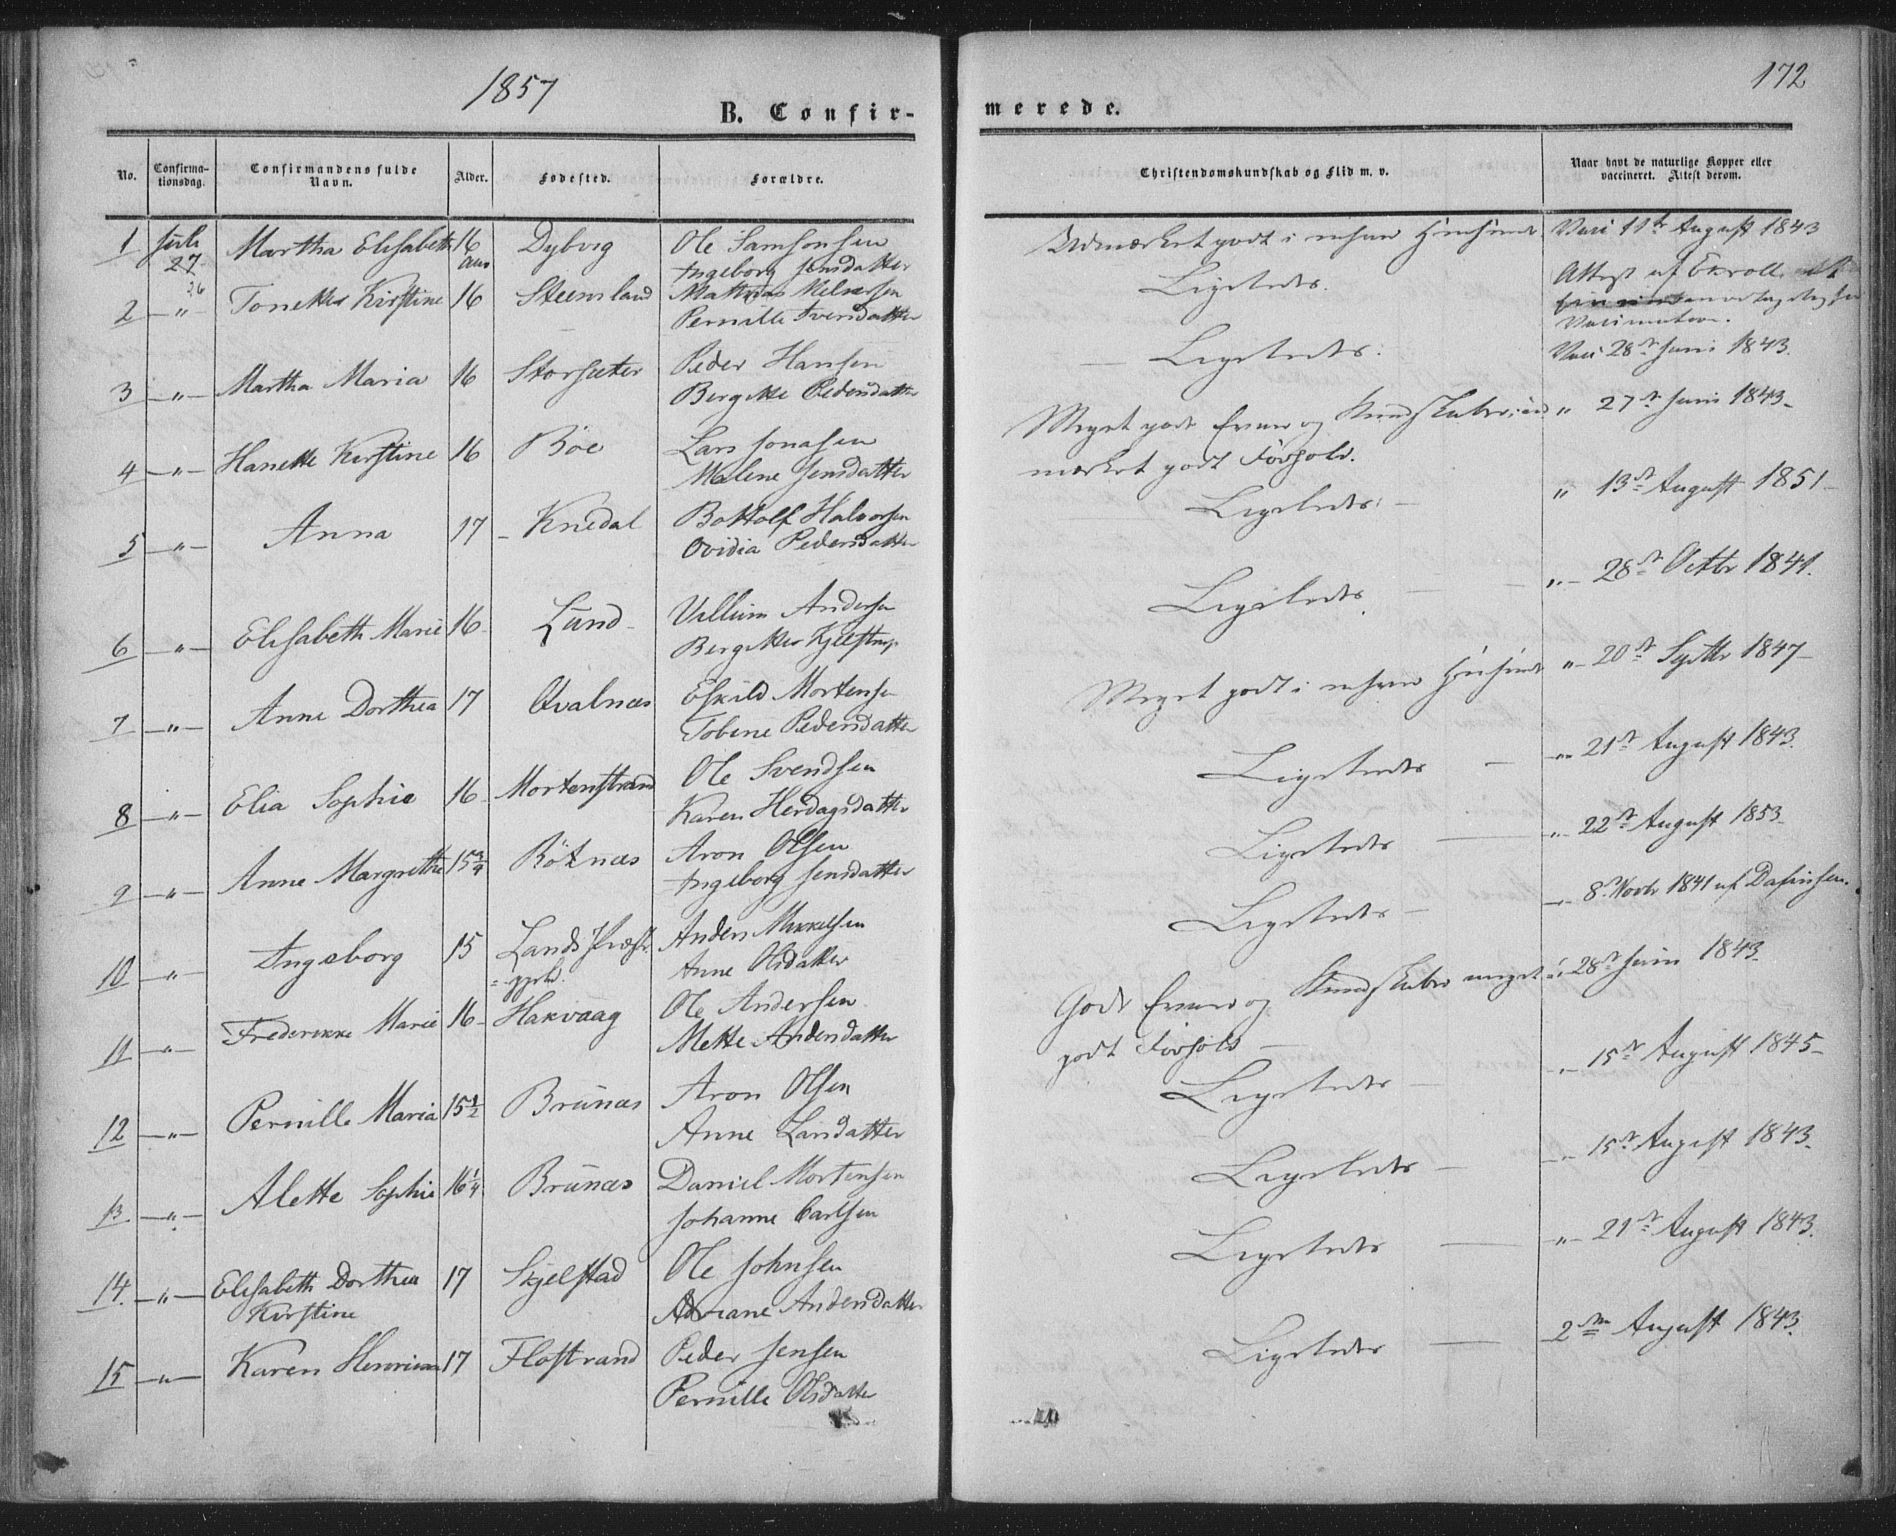 1857
172
B. Confir-
merede.
No.
Confirma-
tionsdag.
Confirmandens fulde
Navn.
Alder.
Fødested.
Forældre.
Christendomskundskab og Flid m. v.
Naar havt de naturlige Kopper eller
vaccineret. Attest derom.
1 Juli 27 Martha Elisabeth 16 Aar Dybvig Ole Samsonsen
Ingeborg Jensdatter
Udmærket godt i enhver Henseende Vacc 11te August 1843
2 26 -"- Tonette Kirstine 16 Steensland Mathias
Pernille Iversdatter
Ligeledes. Attest af Ekroll
Vaccination.
3 -"- Martha Maria 16 Storsæter Peder Hansen
Bergitte Pedersdatter
Ligeledes. Vacc 28de Juni 1843.
4 -"- Hanette Kirstine 16 Böe Lars Jonasen
Malene Jensdatter
Meget gode Evner og Kundskaber; ud " 27de Juni 1843-
mærket godt Forhold.
5 -"- Anna 17 - Knedal Bottolf Halvorsen
Ovidia Pedersdatter
Ligeledes. - " 13de August 1851-
6 -"- Elisabeth Marie 16 Lund Villum Andersen
Bergitte Kjelstrup
Ligeledes - "- 28de Octbr 1841.
7 -"- Anne Dorthea 17 Qvalnæs Eskild Mortensen
Tobine Pedersdatter
Meget godt i enhver Henseende "- 20de Septbr 1847-
8 -"- Elia Sophie 16 Mortenstrand Ole Svendsen
Karen Herdagsdatter
Ligeledes - "- 21de August 1843.
9 -"- Anne Margrethe 15 3/4 Rötnæs Aron Olsen
Ingeborg Jensdatter
Ligeledes - "- 22de August 1853-
10 -"- Ingeborg 15 Lands Præste-
gjeld. Anders Mikkelsen
Anne Olsdatter
Ligeledes - "- 8de Novbr 1841 af
11 -"- Frederikke Marie 16- Hakvaag Ole Andersen
Mette Andersdatter
Gode Evner og Kundskaber meget "- 28de Juni 1843.
godt Forhold -
12 -"- Pernille Maria 15 1/2 Brünæs Aron Olsen
Anne Larsdatter
Ligeledes - "- 15de August 1845-
13 -"- Alette Sophie 16 1/4 Brünæs Daniel Mortensen
Johanne Carlsen
Ligeledes - "- 15de August 1843.
14. -"- Elisabeth Dorthea
Kirstine 17 Skjelstad Ole Johnsen
Adriane Andersdatter
Ligeledes - "- 21de August 1843.
15 -"- Karen 17 Flostrand Peder Jensen
Pernille Olsdatter
Ligeledes - 2den August 1843.